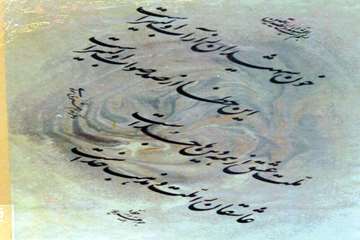 خون شهیدان را ز آب اولیتر است
این خطا از صد صواب اولیتر است
ملت عشق از همه دینها جداست
عاشقان را ملت و مذهب خداست